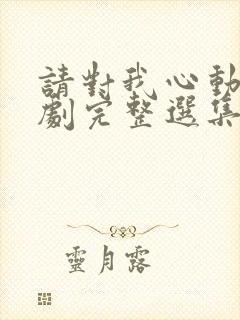 請對我心動
劇完整選集
靈月露